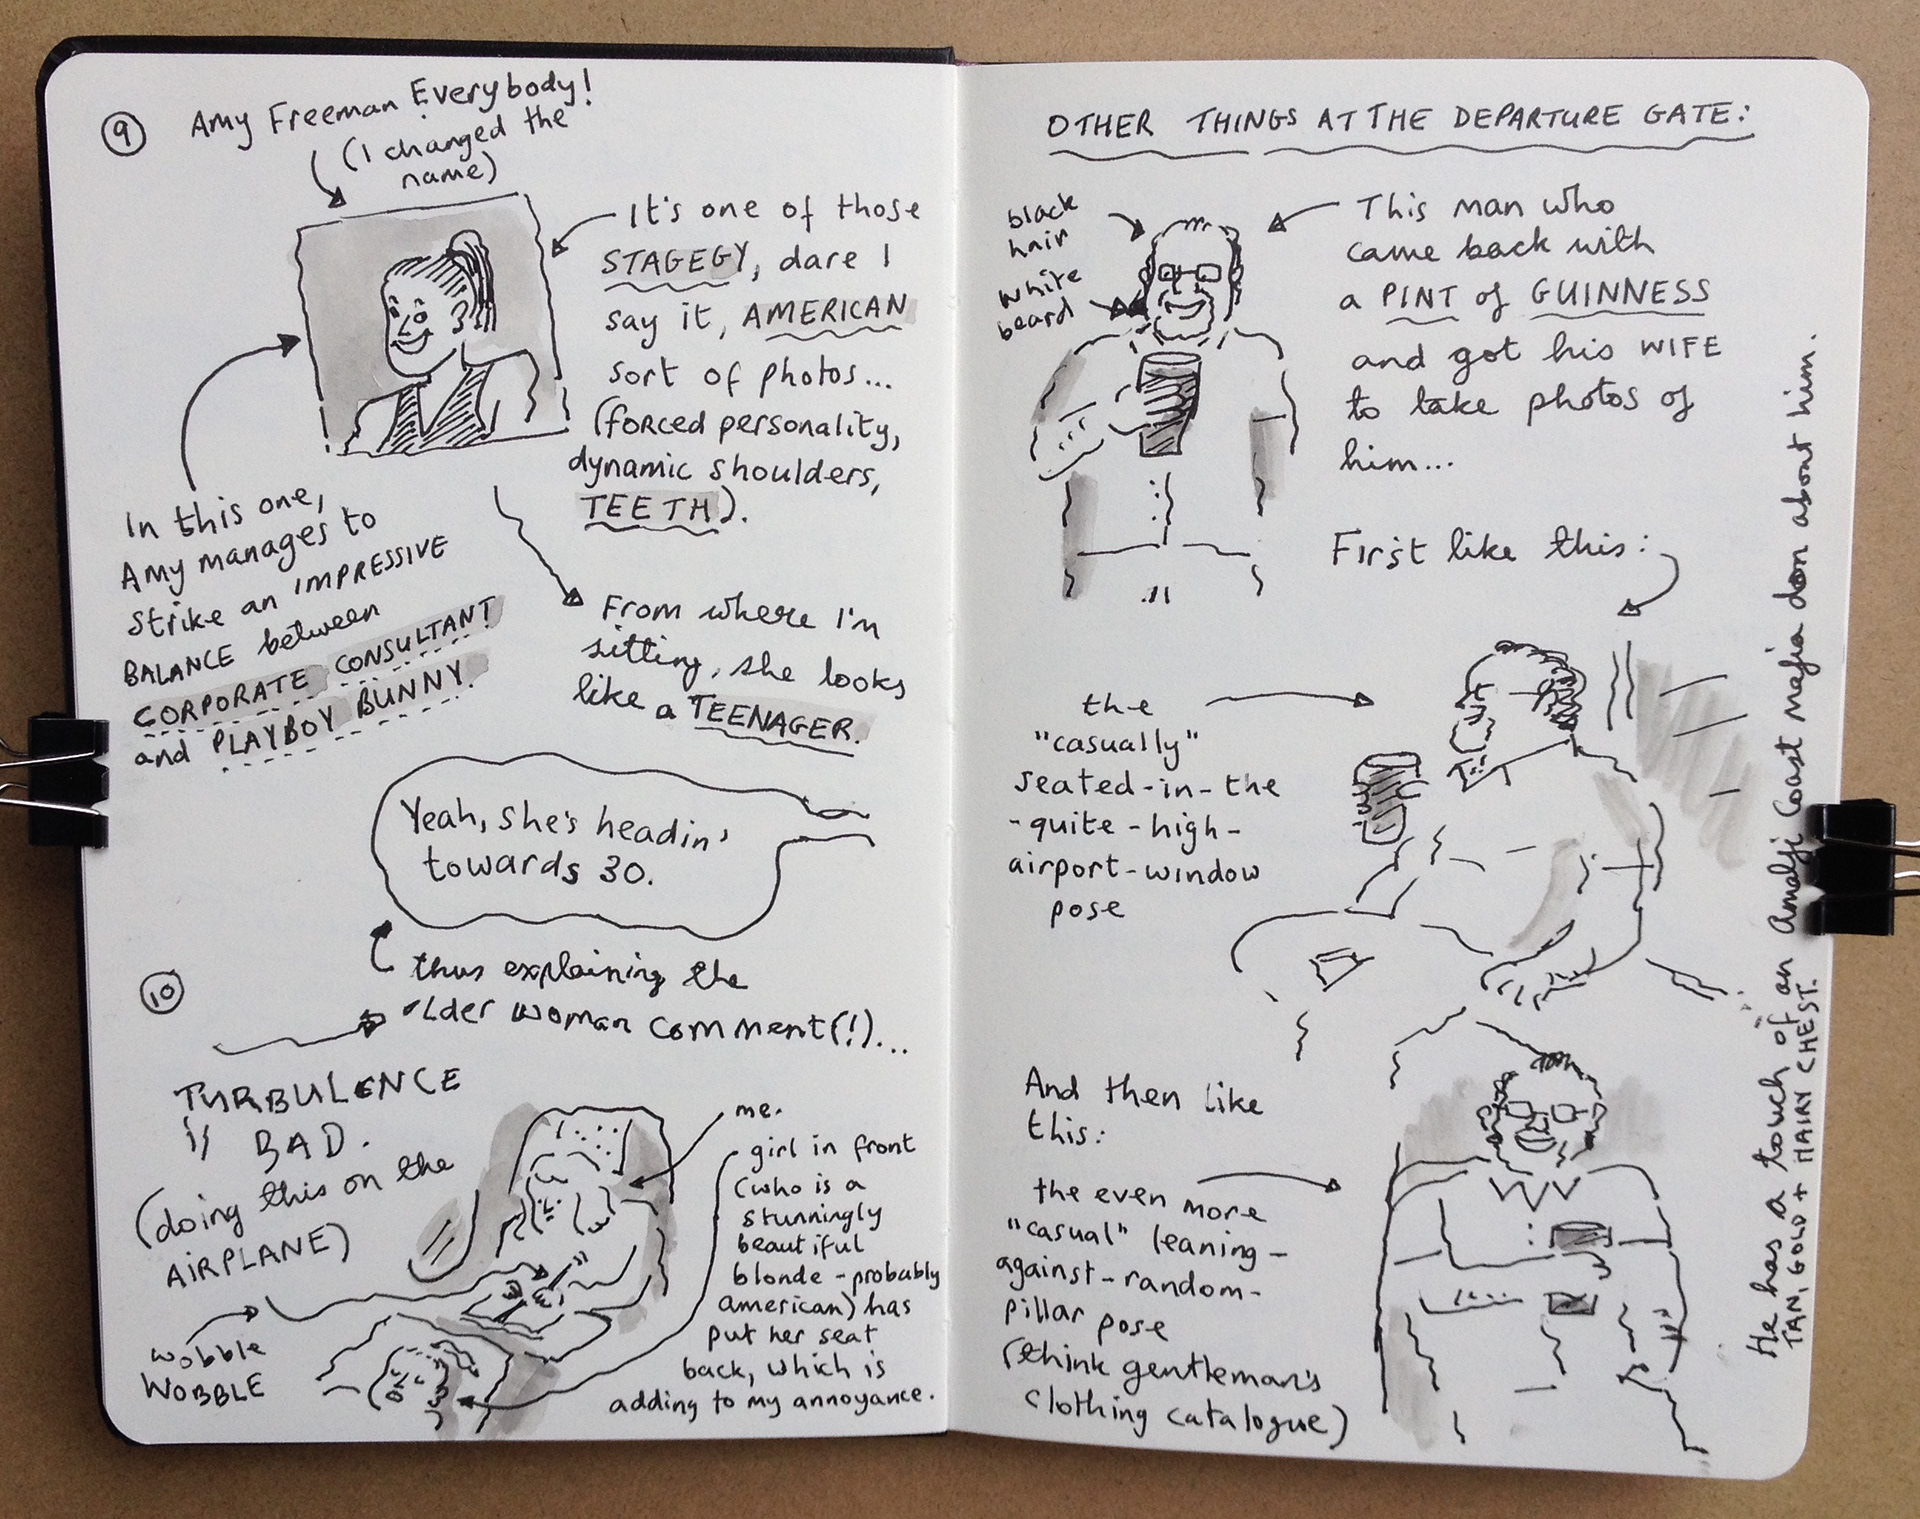 9
Amy Freeman Everybody!
(I changed the
name)
It's one of those
STAGEGY, dare I
say it, AMERICAN
sort of photos...
(forced personality,
dynamic shoulders,
TEETH).
In this one,
Amy manages to
strike an IMPRESSIVE
BALANCE between
CORPORATE CONSULTANT
and PLAYBOY BUNNY.
From where I'm
sitting, she looks
like a TEENAGER.
Yeah, she's headin'
towards 30.
thus explaining the
older woman comment(!)...
10
TURBULENCE
is BAD.
(doing this on the
AIRPLANE)
wobble
WOBBLE
me.
girl in front
(who is a
stunningly
beautiful
blonde - probably
american) has
put her seat
back, which is
adding to my annoyance.
OTHER THINGS AT THE DEPARTURE GATE:
black
hair
white
beard
This man who
came back with
a PINT of GUINNESS
and got his WIFE
to take photos of
him...
First like this:
the
"casually"
seated-in-the
-quite-high-
airport-window
pose
And then like
this:
the even more
"casual" leaning-
against-random-
pillar pose
(think gentleman's
clothing catalogue)
He has a touch of an Amalfi Coast mafia don about him.
TAN, GOLD + HAIRY CHEST.